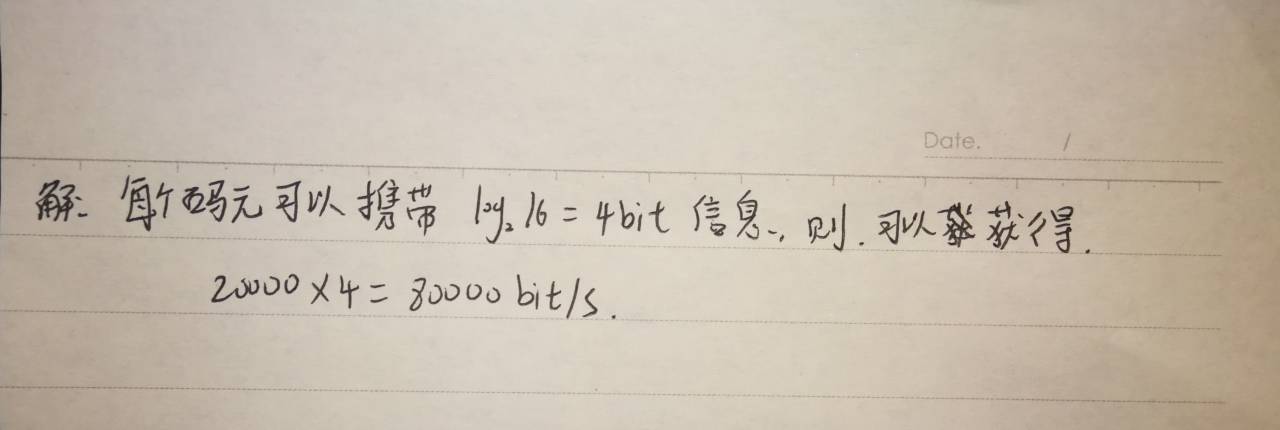 Date. /
解: 每个码元可以携带 log₂16=4bit 信息, 则. 可以获得.
20000×4=80000bit/s.